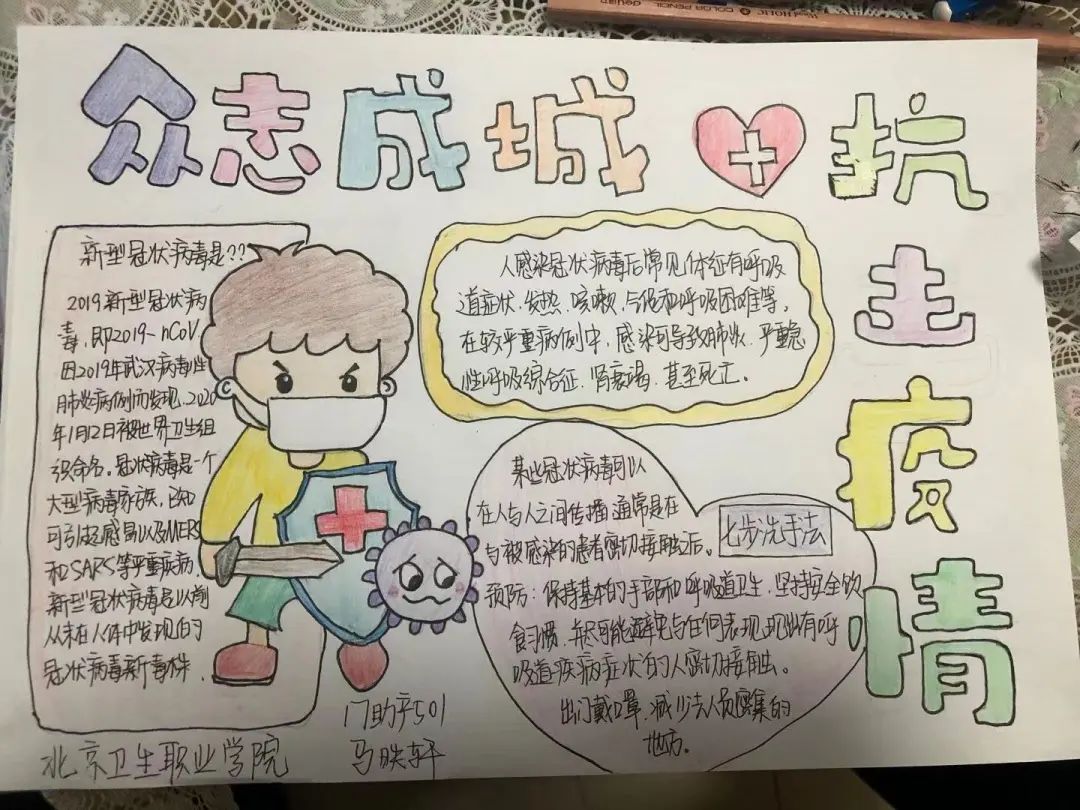 众志成城 抗
击
疫
情
新型冠状病毒是??
2019新型冠状病
毒,即2019-nCoV
因2019年武汉病毒性
肺炎病例而发现,2020
年1月12日被世界卫生组
织命名。冠状病毒是一个
大型病毒家族,已知
可引起感冒以及MERS
和SARS等严重疾病.
新型冠状病毒是以前
从未在人体中发现的
冠状病毒新毒株.
人感染冠状病毒后常见体征有呼吸
道症状、发热、咳嗽、气促和呼吸困难等。
在较严重病例中,感染可导致肺炎、严重急
性呼吸综合征、肾衰竭、甚至死亡。
某些冠状病毒可以
在人与人之间传播,通常是在
与被感染的患者密切接触之后。
七步洗手法
预防:保持基本的手部和呼吸道卫生,坚持安全饮
食习惯,并尽可能避免与任何表现出有呼
吸道疾病症状的人密切接触。
出门戴口罩,减少去人员密集的
地方。
17助产501
马轩
北京卫生职业学院
COLOR PENCIL